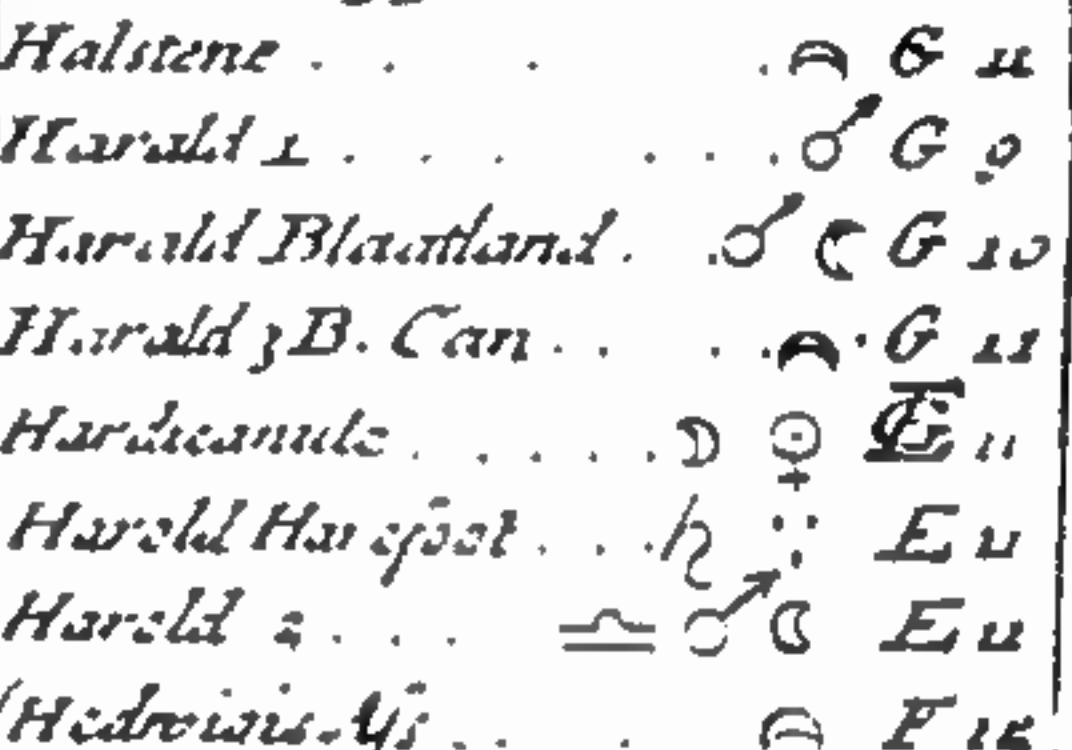 Halstene . . . . G 11
Harald 1 . . . . . . ♂ G 9
Harald Blaatland . . ♂ ☾ G 10
Harald 3 B. Can . . . . G 11
Hardicanute . . . . . ☽ ☉ 11
Harold Harefoot . . . ♄ E 11
Harold 2 . . . ♎ ♂ ☾ E 11